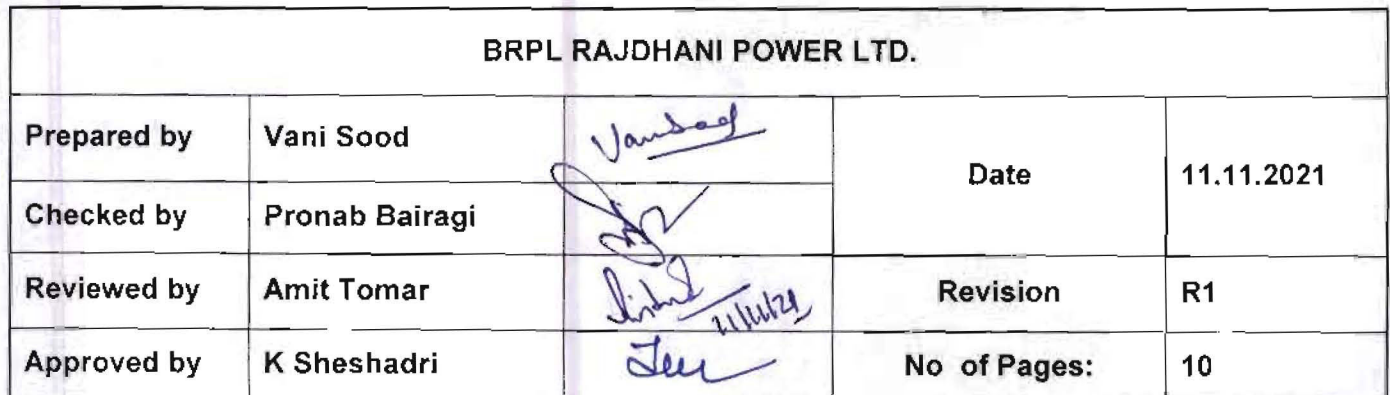 BRPL RAJDHANI POWER LTD.
Prepared by Vani Sood VaniSood Date 11.11.2021
Checked by Pronab Bairagi
Reviewed by Amit Tomar 11/11/21 Revision R1
Approved by K Sheshadri No of Pages: 10